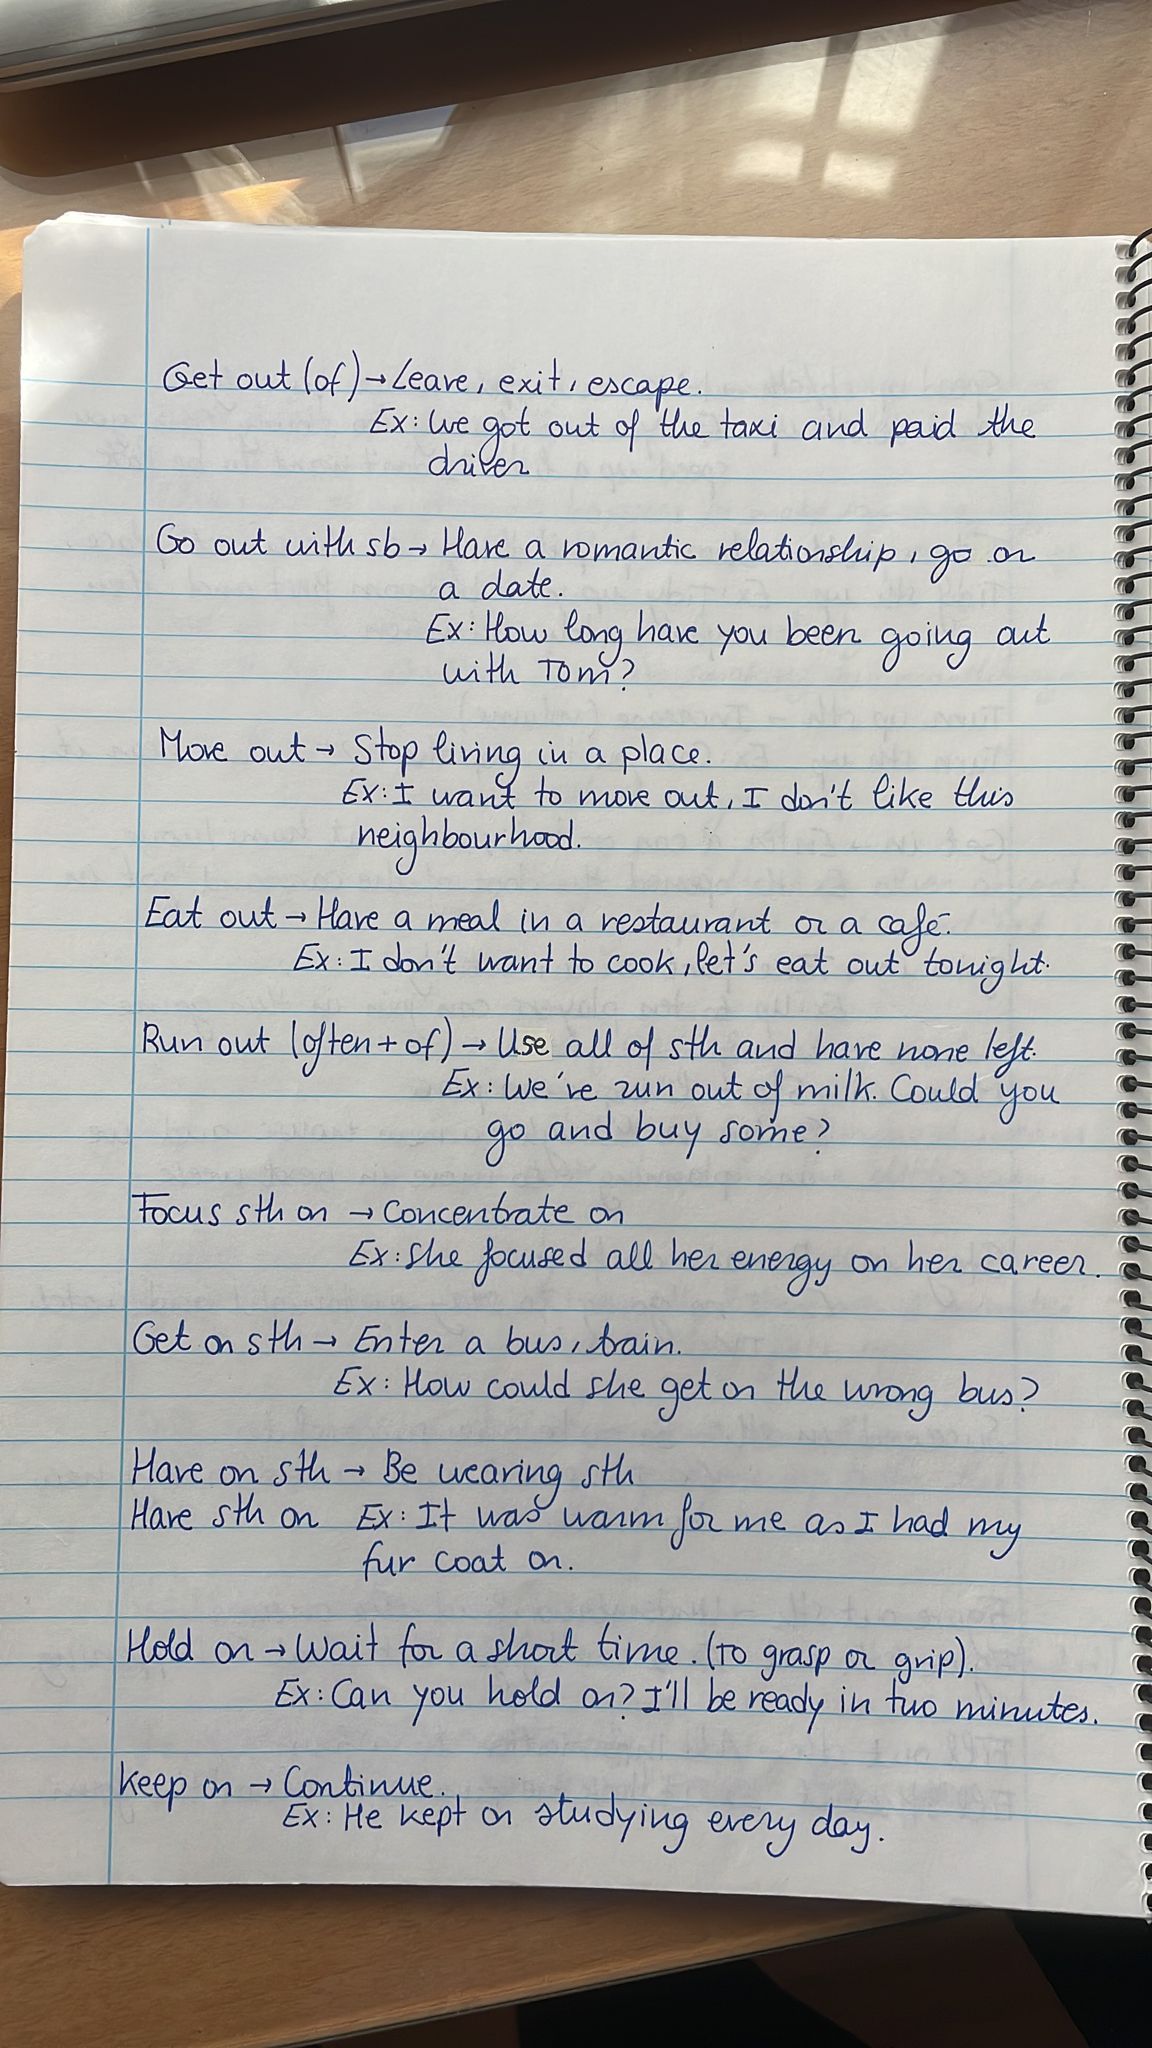 Get out (of) → Leave, exit, escape.
Ex: We got out of the taxi and paid the
driver
Go out with sb → Have a romantic relationship, go on
a date.
Ex: How long have you been going out
with Tom?
Move out → Stop living in a place.
Ex: I want to move out, I don't like this
neighbourhood.
Eat out → Have a meal in a restaurant or a café.
Ex: I don't want to cook, let's eat out tonight.
Run out (often + of) → Use all of sth and have none left.
Ex: We've run out of milk. Could you
go and buy some?
Focus sth on → Concentrate on
Ex: She focused all her energy on her career.
Get on sth → Enter a bus, train.
Ex: How could she get on the wrong bus?
Have on sth → Be wearing sth
Have sth on Ex: It was warm for me as I had my
fur coat on.
Hold on → Wait for a short time. (To grasp or grip).
Ex: Can you hold on? I'll be ready in two minutes.
Keep on → Continue.
Ex: He kept on studying every day.